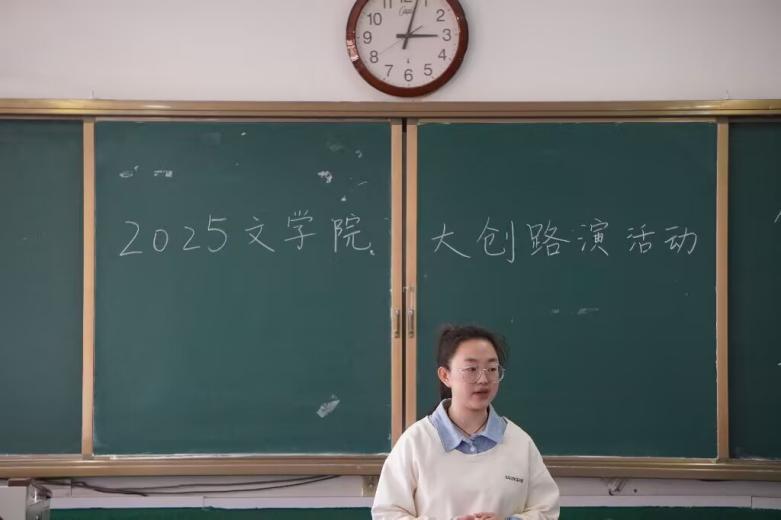 10
9
8
7
6
5
4
3
2025文学院
大创路演活动